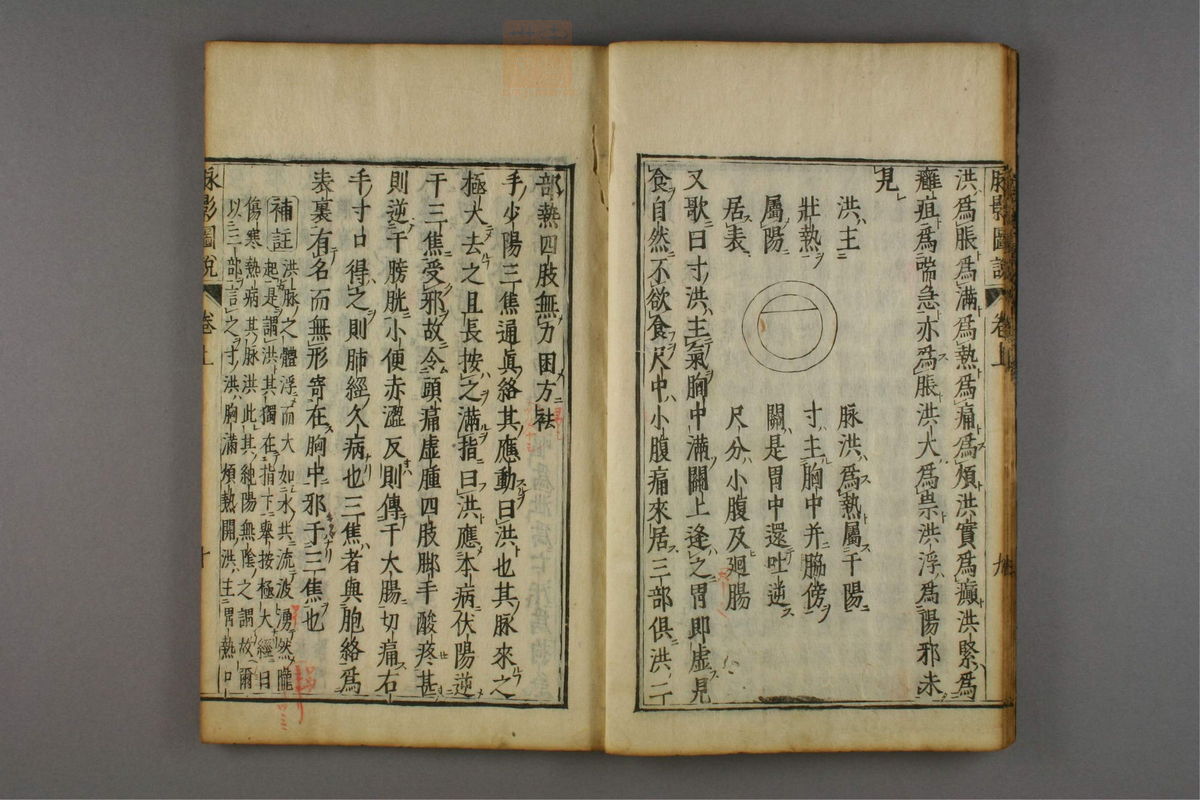 脉影圖說 卷上 九
洪爲脹爲滿爲熱爲痛爲煩洪實爲癲洪緊爲
癰疽爲喘急亦爲脹洪大爲祟洪浮爲陽邪未
見
洪主
壯熱
屬陽
居表
脉洪爲熱屬干陽
寸主胸中并脇傍
關是胃中還吐逆
尺分小腹及廻腸
又歌曰寸洪主氣胸中滿關上逢之胃即虛見
食自然不欲食尺中小腹痛來居三部俱洪二
部熱四肢無力困方袪
手少陽三焦通眞絡其應動曰洪也其脉來之
極大去之且長按之滿指曰洪應本病伏陽逆
干三焦受邪故令頭痛虛腫四肢脚手酸疼甚
則逆干膀胱小便赤澀反則傳干大腸切痛右
手寸口得之則肺經久病也三焦者與胞絡爲
表裏有名而無形寄在胸中邪于三焦也
補註 洪脉之體浮而大如水共流波湧然隴
起是謂洪其獨在指下舉按極大經曰
傷寒熱病其脉洪此其純陽無陰之謂故爾
以三部言之寸洪胸滿煩熱關洪主胃熱口
脉影圖說 卷上 十